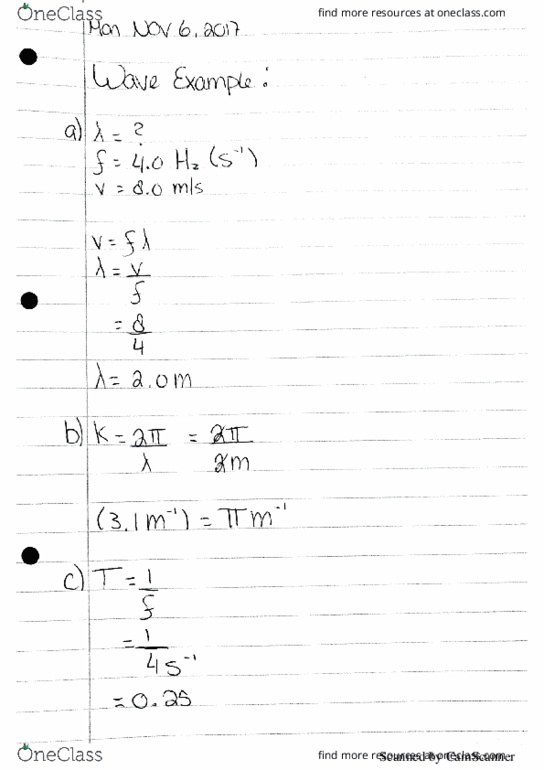 OneClass
find more resources at oneclass.com
Mon Nov 6, 2017
Wave Example:
a) λ = ?
f = 4.0 Hz (s⁻¹)
v = 8.0 m/s
v = fλ
λ = v/f
= 8/4
λ = 2.0m
b) K = 2π/λ = 2π/2m
(3.1m⁻¹) = πm⁻¹
c) T = 1/f
= 1/4s⁻¹
= 0.25
OneClass
find more resources at oneclass.com
Scanned by CamScanner